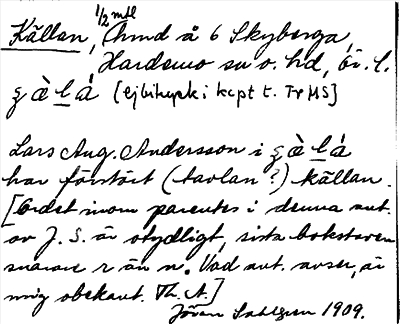 1/2 mtl
Källan, Åmd å 6 Skyberga,
Hardemo sn o. hd, Ör. l.
g à l á [ej bihupk i kcpt t. Tr MS]
Lars Aug. Andersson i g à l á
har förstört (tavlan?) källan.
[Ordet inom parentes i denna ant.
av J. S. är otydligt, sista bokstaven
snarare r än n. Vad ant. avser, är
mig obekant. Th. A.]
Jöran Sahlgren 1909.